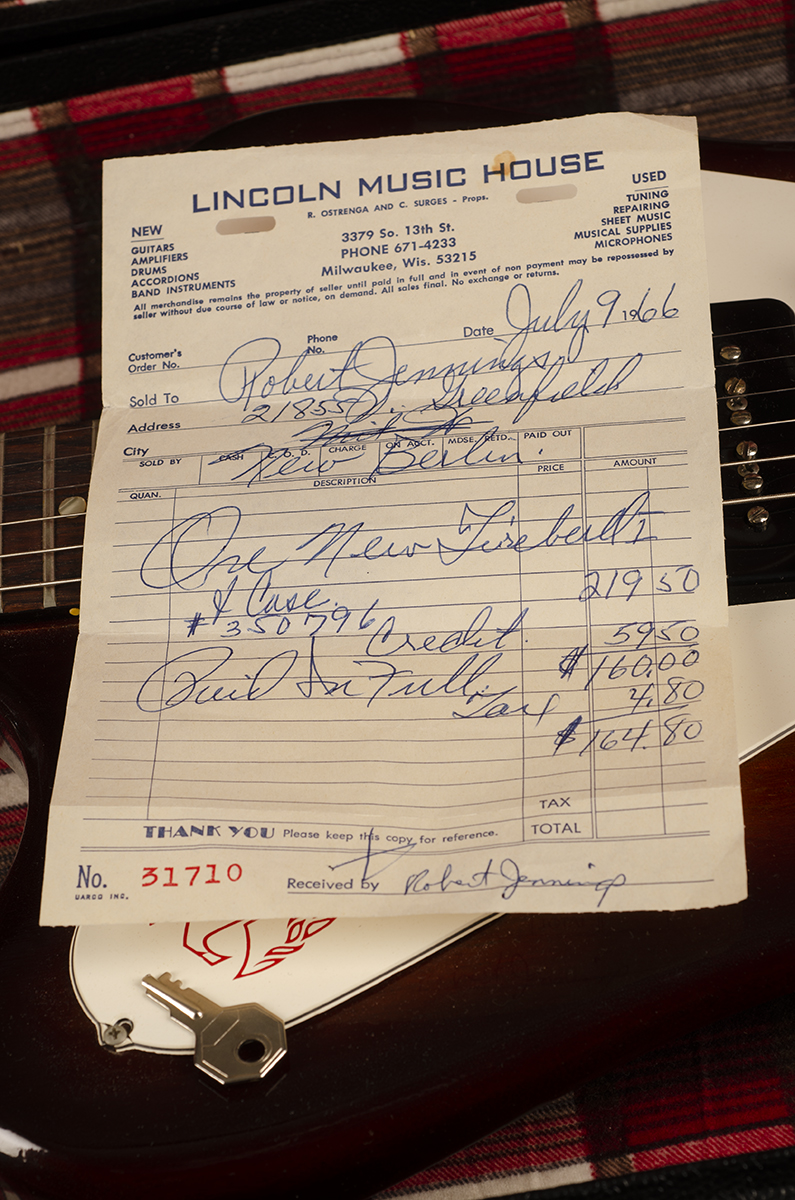 LINCOLN MUSIC HOUSE
R. OSTRENGA AND C. SURGES - Props.
NEW
GUITARS
AMPLIFIERS
DRUMS
ACCORDIONS
BAND INSTRUMENTS
3379 So. 13th St.
PHONE 671-4233
Milwaukee, Wis. 53215
USED
TUNING
REPAIRING
SHEET MUSIC
MUSICAL SUPPLIES
MICROPHONES
All merchandise remains the property of seller until paid in full and in event of non payment may be repossessed by
seller without due course of law or notice, on demand. All sales final. No exchange or returns.
Customer's
Order No.
Phone
No.
Date July 9 1966
Sold To Robert Jennings
Address 21855 W. Greenfield
City New Berlin.
SOLD BY CASH C.O.D. CHARGE ON ACCT. MDSE. RETD. PAID OUT
QUAN. DESCRIPTION PRICE AMOUNT
One New Firebird I
& Case 219 50
# 350796
Credit 59 50
$160.00
Paid In Full.
Tax 4.80
$164.80
TAX
TOTAL
THANK YOU Please keep this copy for reference.
No. 31710
UARCO INC.
Received by Robert Jennings